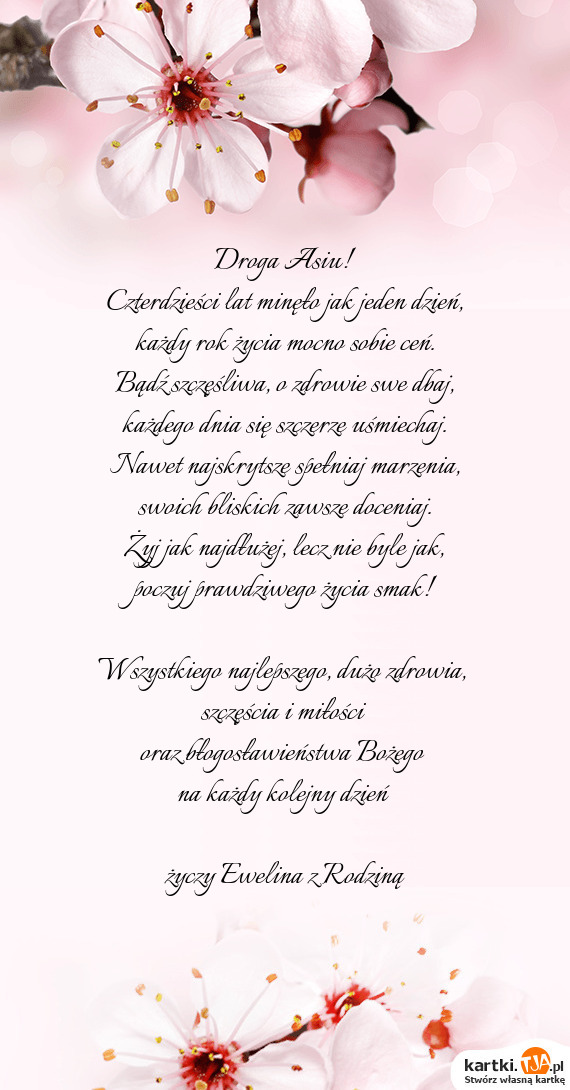 Droga Asiu!
Czterdzieści lat minęło jak jeden dzień,
każdy rok życia mocno sobie ceń.
Bądź szczęśliwa, o zdrowie swe dbaj,
każdego dnia się szczerze uśmiechaj.
Nawet najskrytsze spełniaj marzenia,
swoich bliskich zawsze doceniaj.
Żyj jak najdłużej, lecz nie byle jak,
poczuj prawdziwego życia smak!
Wszystkiego najlepszego, dużo zdrowia,
szczęścia i miłości
oraz błogosławieństwa Bożego
na każdy kolejny dzień
życzy Ewelina z Rodziną
kartki.TJA.pl
Stwórz własną kartkę